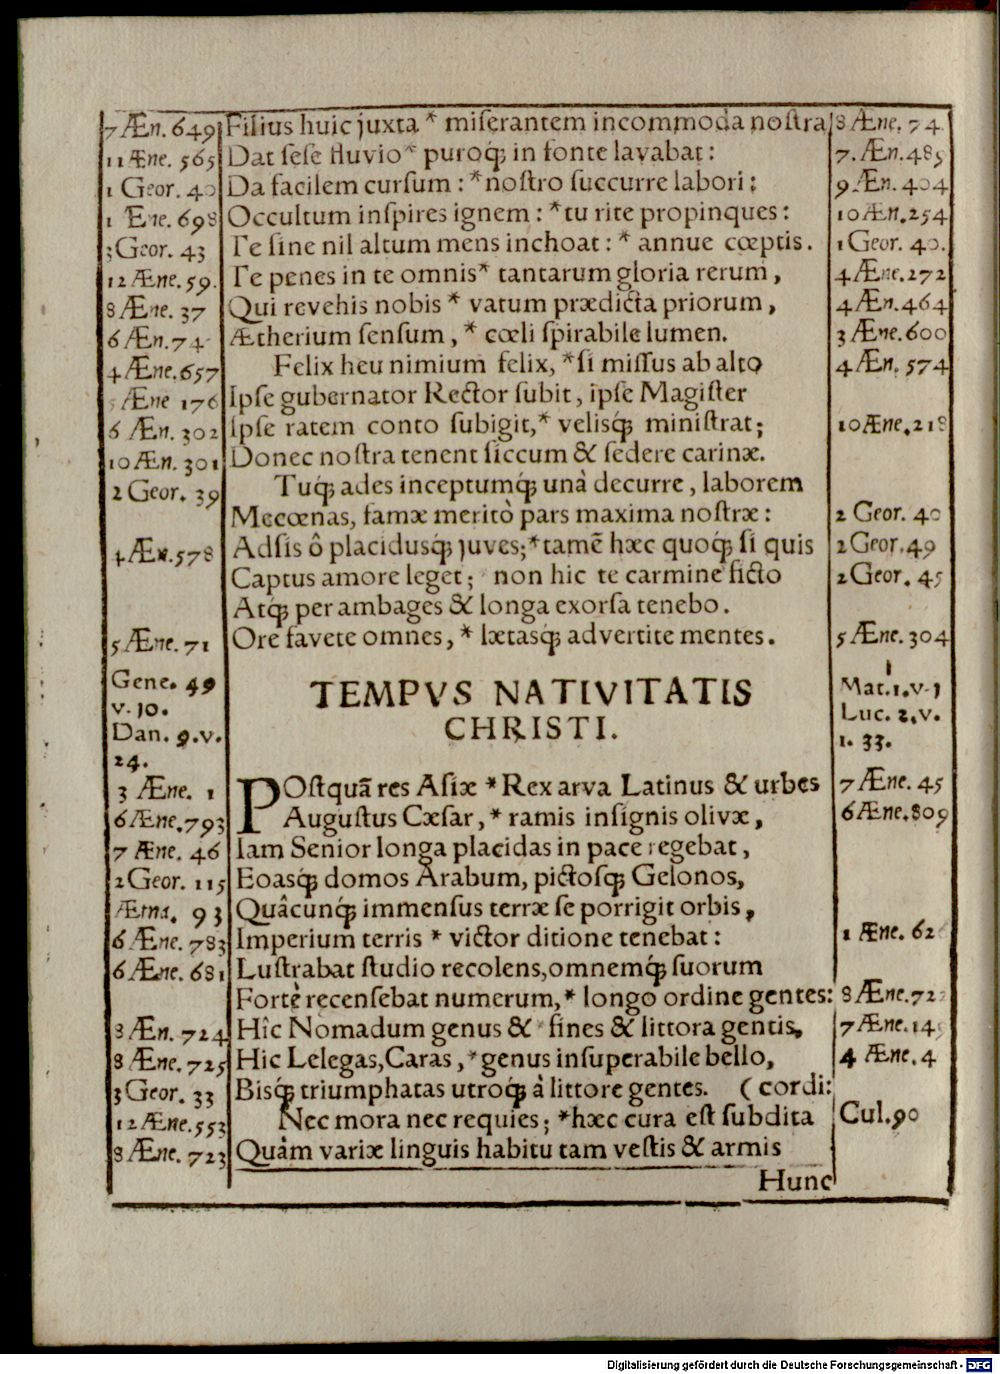 7 Æn. 649 Filius huic juxta * miserantem incommoda nostra 8 Æne. 74
11 Æne. 565 Dat sese fluvio * puroq; in fonte lavabat: 7. Æn. 489
1 Geor. 40 Da facilem cursum: * nostro succurre labori: 9 Æn. 404
1 Ene. 698 Occultum inspires ignem: * tu rite propinques: 10 Æn. 254
3 Geor. 43 Te sine nil altum mens inchoat: * annue cœptis. 1 Geor. 40.
12 Æne. 59. Te penes in te omnis * tantarum gloria rerum, 4 Æne. 272
8 Æne. 37 Qui revehis nobis * vatum prædicta priorum, 4 Æn. 464
6 Æn. 74 Ætherium sensum, * cœli spirabile lumen. 3 Æne. 600
4 Æne. 657 Felix heu nimium felix, * si missus ab alto 4 Æn. 574
5 Æne 176 Ipse gubernator Rector subit, ipse Magister
6 Æn. 302 Ipse ratem conto subigit, * velisq; ministrat; 10 Æne. 218
10 Æn. 301 Donec nostra tenent siccum & sedere carinæ.
2 Geor. 39 Tuq; ades inceptumq; unà decurre, laborem
Mecœnas, famæ meritò pars maxima nostræ: 2 Geor. 40
4 Æn. 578 Adsis ô placidusq; juves; * tamē hæc quoq; si quis 2 Geor. 49
Captus amore leget; non hic te carmine ficto 2 Geor. 45
Atq; per ambages & longa exorsa tenebo.
5 Æne. 71 Ore favete omnes, * lætasq; advertite mentes. 5 Æne. 304
Gene. 49
v. 10.
Dan. 9. v.
24.
TEMPVS NATIVITATIS
CHRISTI.
Mat. 1. v. 1
Luc. 2. v.
1. 33.
3 Æne. 1 POstquā res Asiæ * Rex arva Latinus & urbes 7 Æne. 45
6 Æne. 793 Augustus Cæsar, * ramis insignis olivæ, 6 Æne. 809
7 Æne. 46 Iam Senior longa placidas in pace regebat,
2 Geor. 115 Eoasq; domos Arabum, pictosq; Gelonos,
Ætna. 93 Quâcunq; immensus terræ se porrigit orbis,
6 Æne. 783 Imperium terris * victor ditione tenebat: 1 Æne. 62
6 Æne. 681 Lustrabat studio recolens, omnemq; suorum
Fortè recensebat numerum, * longo ordine gentes: 8 Æne. 722
8 Æn. 724 Hîc Nomadum genus & * fines & littora gentis, 7 Æne. 149
8 Æne. 725 Hic Lelegas, Caras, * genus insuperabile bello, 4 Æne. 4
3 Geor. 33 Bisq; triumphatas utroq; à littore gentes. (cordi:
12 Æne. 553 Nec mora nec requies; * hæc cura est subdita Cul. 90
8 Æne. 723 Quàm variæ linguis habitu tam vestis & armis
Hunc
Digitalisierung gefördert durch die Deutsche Forschungsgemeinschaft - DFG